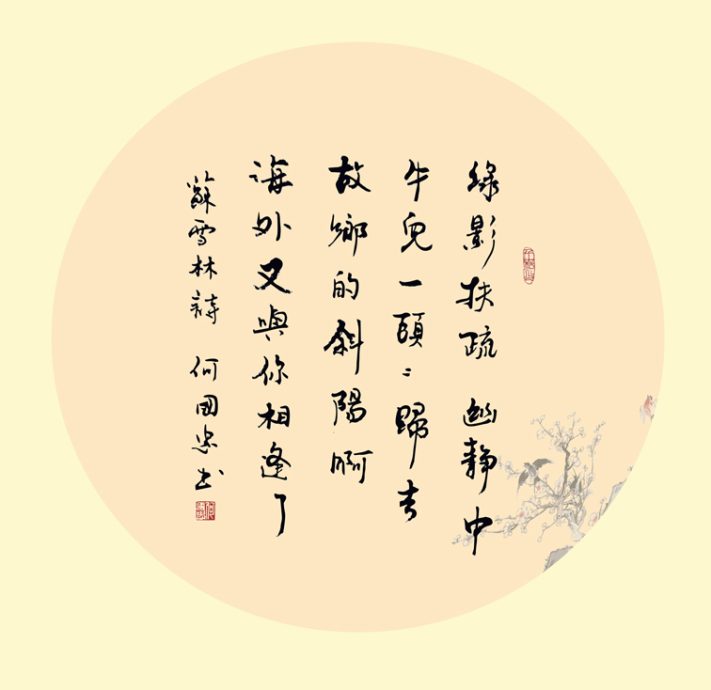 綠影扶疏 幽静中
牛兒一頭〻歸去
故鄉的斜陽啊
海外又與你相逢了
蘇雪林詩 何國忠书